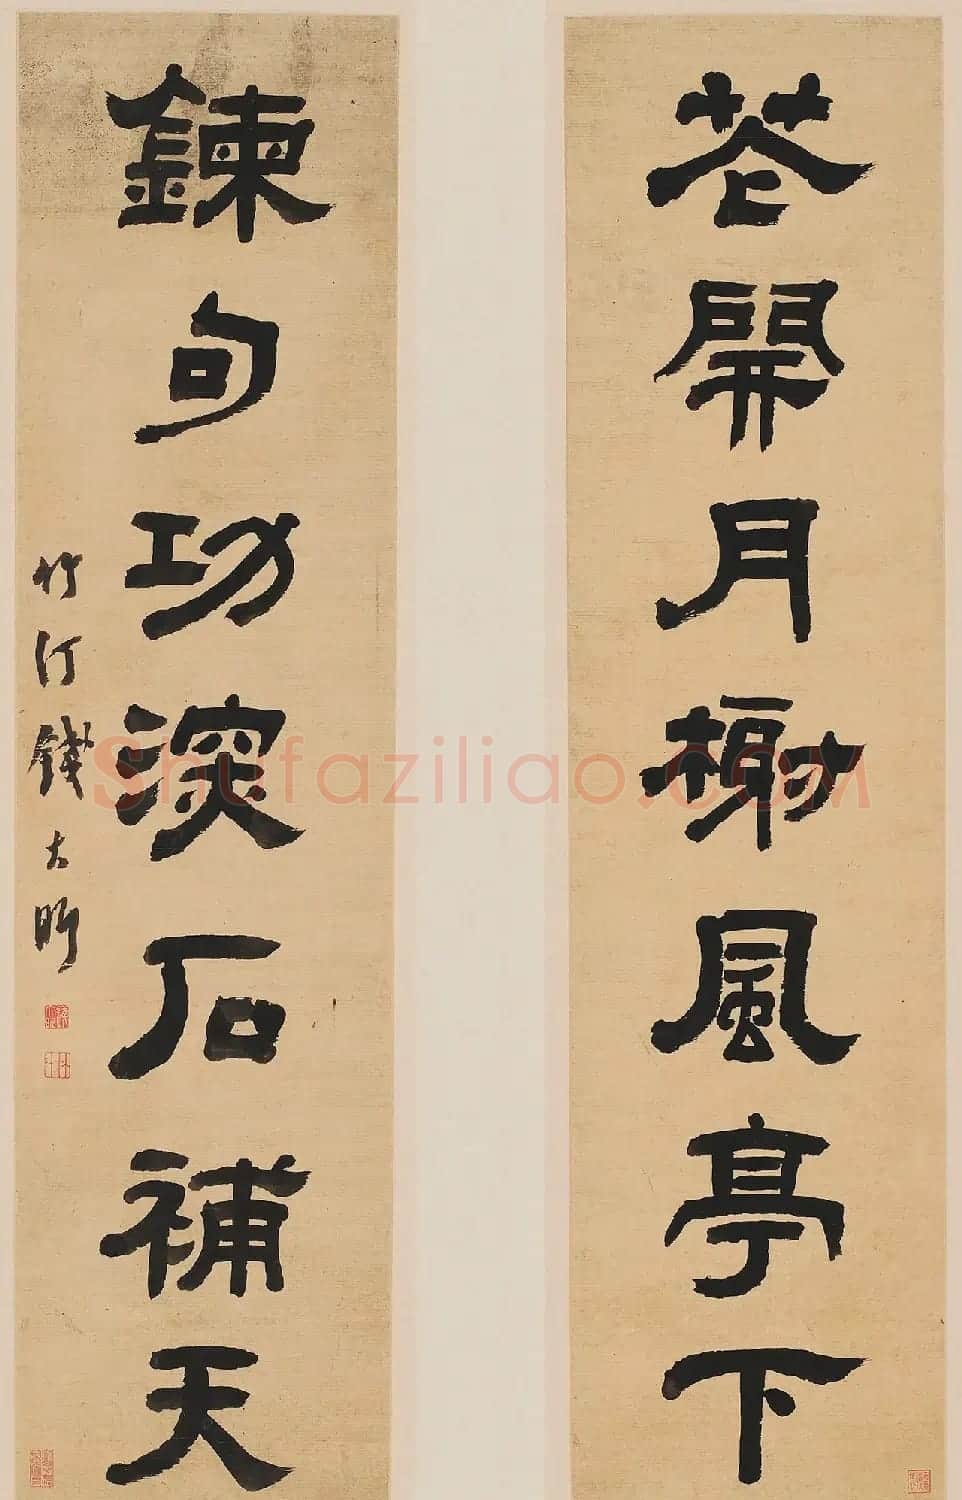 花開月榭風亭下
鍊句功深石補天
竹汀錢大昕
Shufaziliao.com